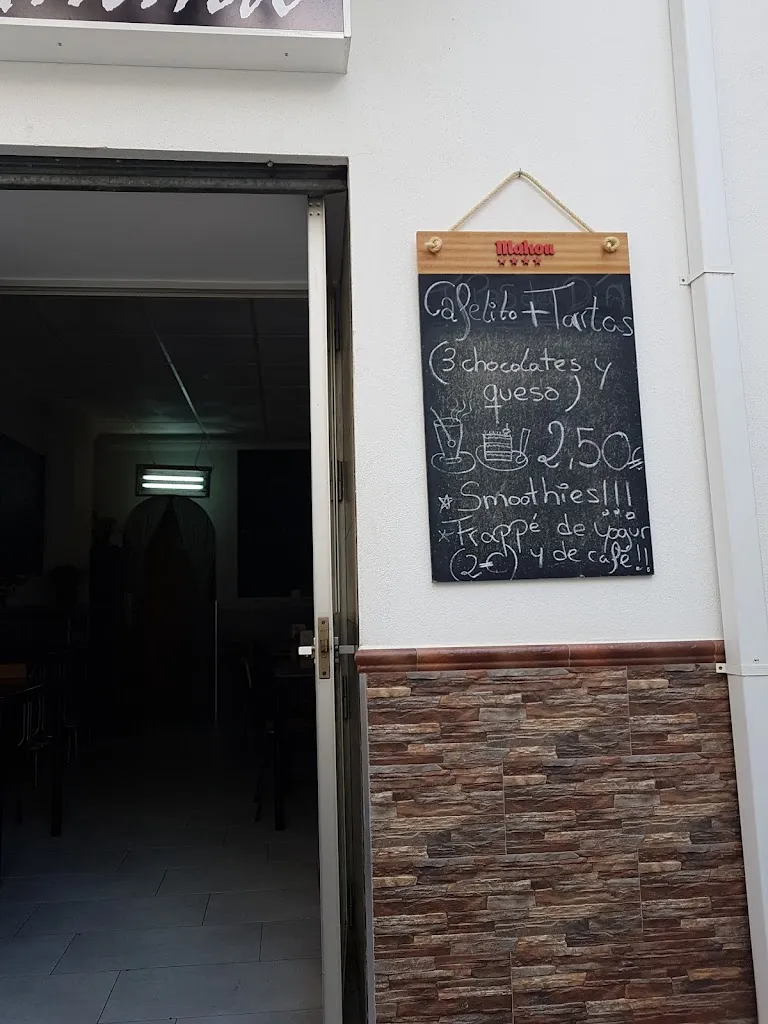 Mahou
Cafelito + Tartas
(3 chocolates y
queso)
2,50€
* Smoothies!!!
* Frappé de yogur
(2€) y de café!!